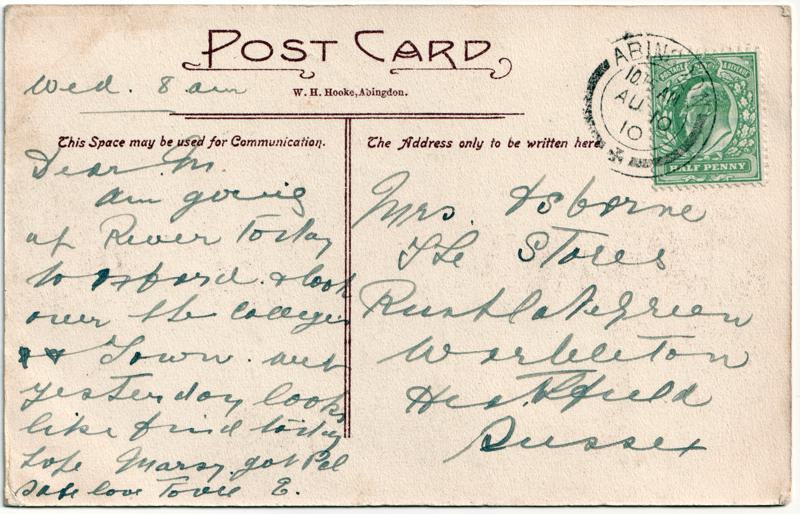 POST CARD
W. H. Hooke, Abingdon.
Wed. 8 am
This Space may be used for Communication.
The Address only to be written here
ABING
10. AM
AU 10
10
HALF PENNY
Dear M.
am going
up River Today
to Oxford. & look
over the Colleges
& Town. wet
yesterday looks
like find today
hope got
safe love E.
Mrs. Osborne
The Stores
Rushlake Green
Warbleton
Heathfield
Sussex